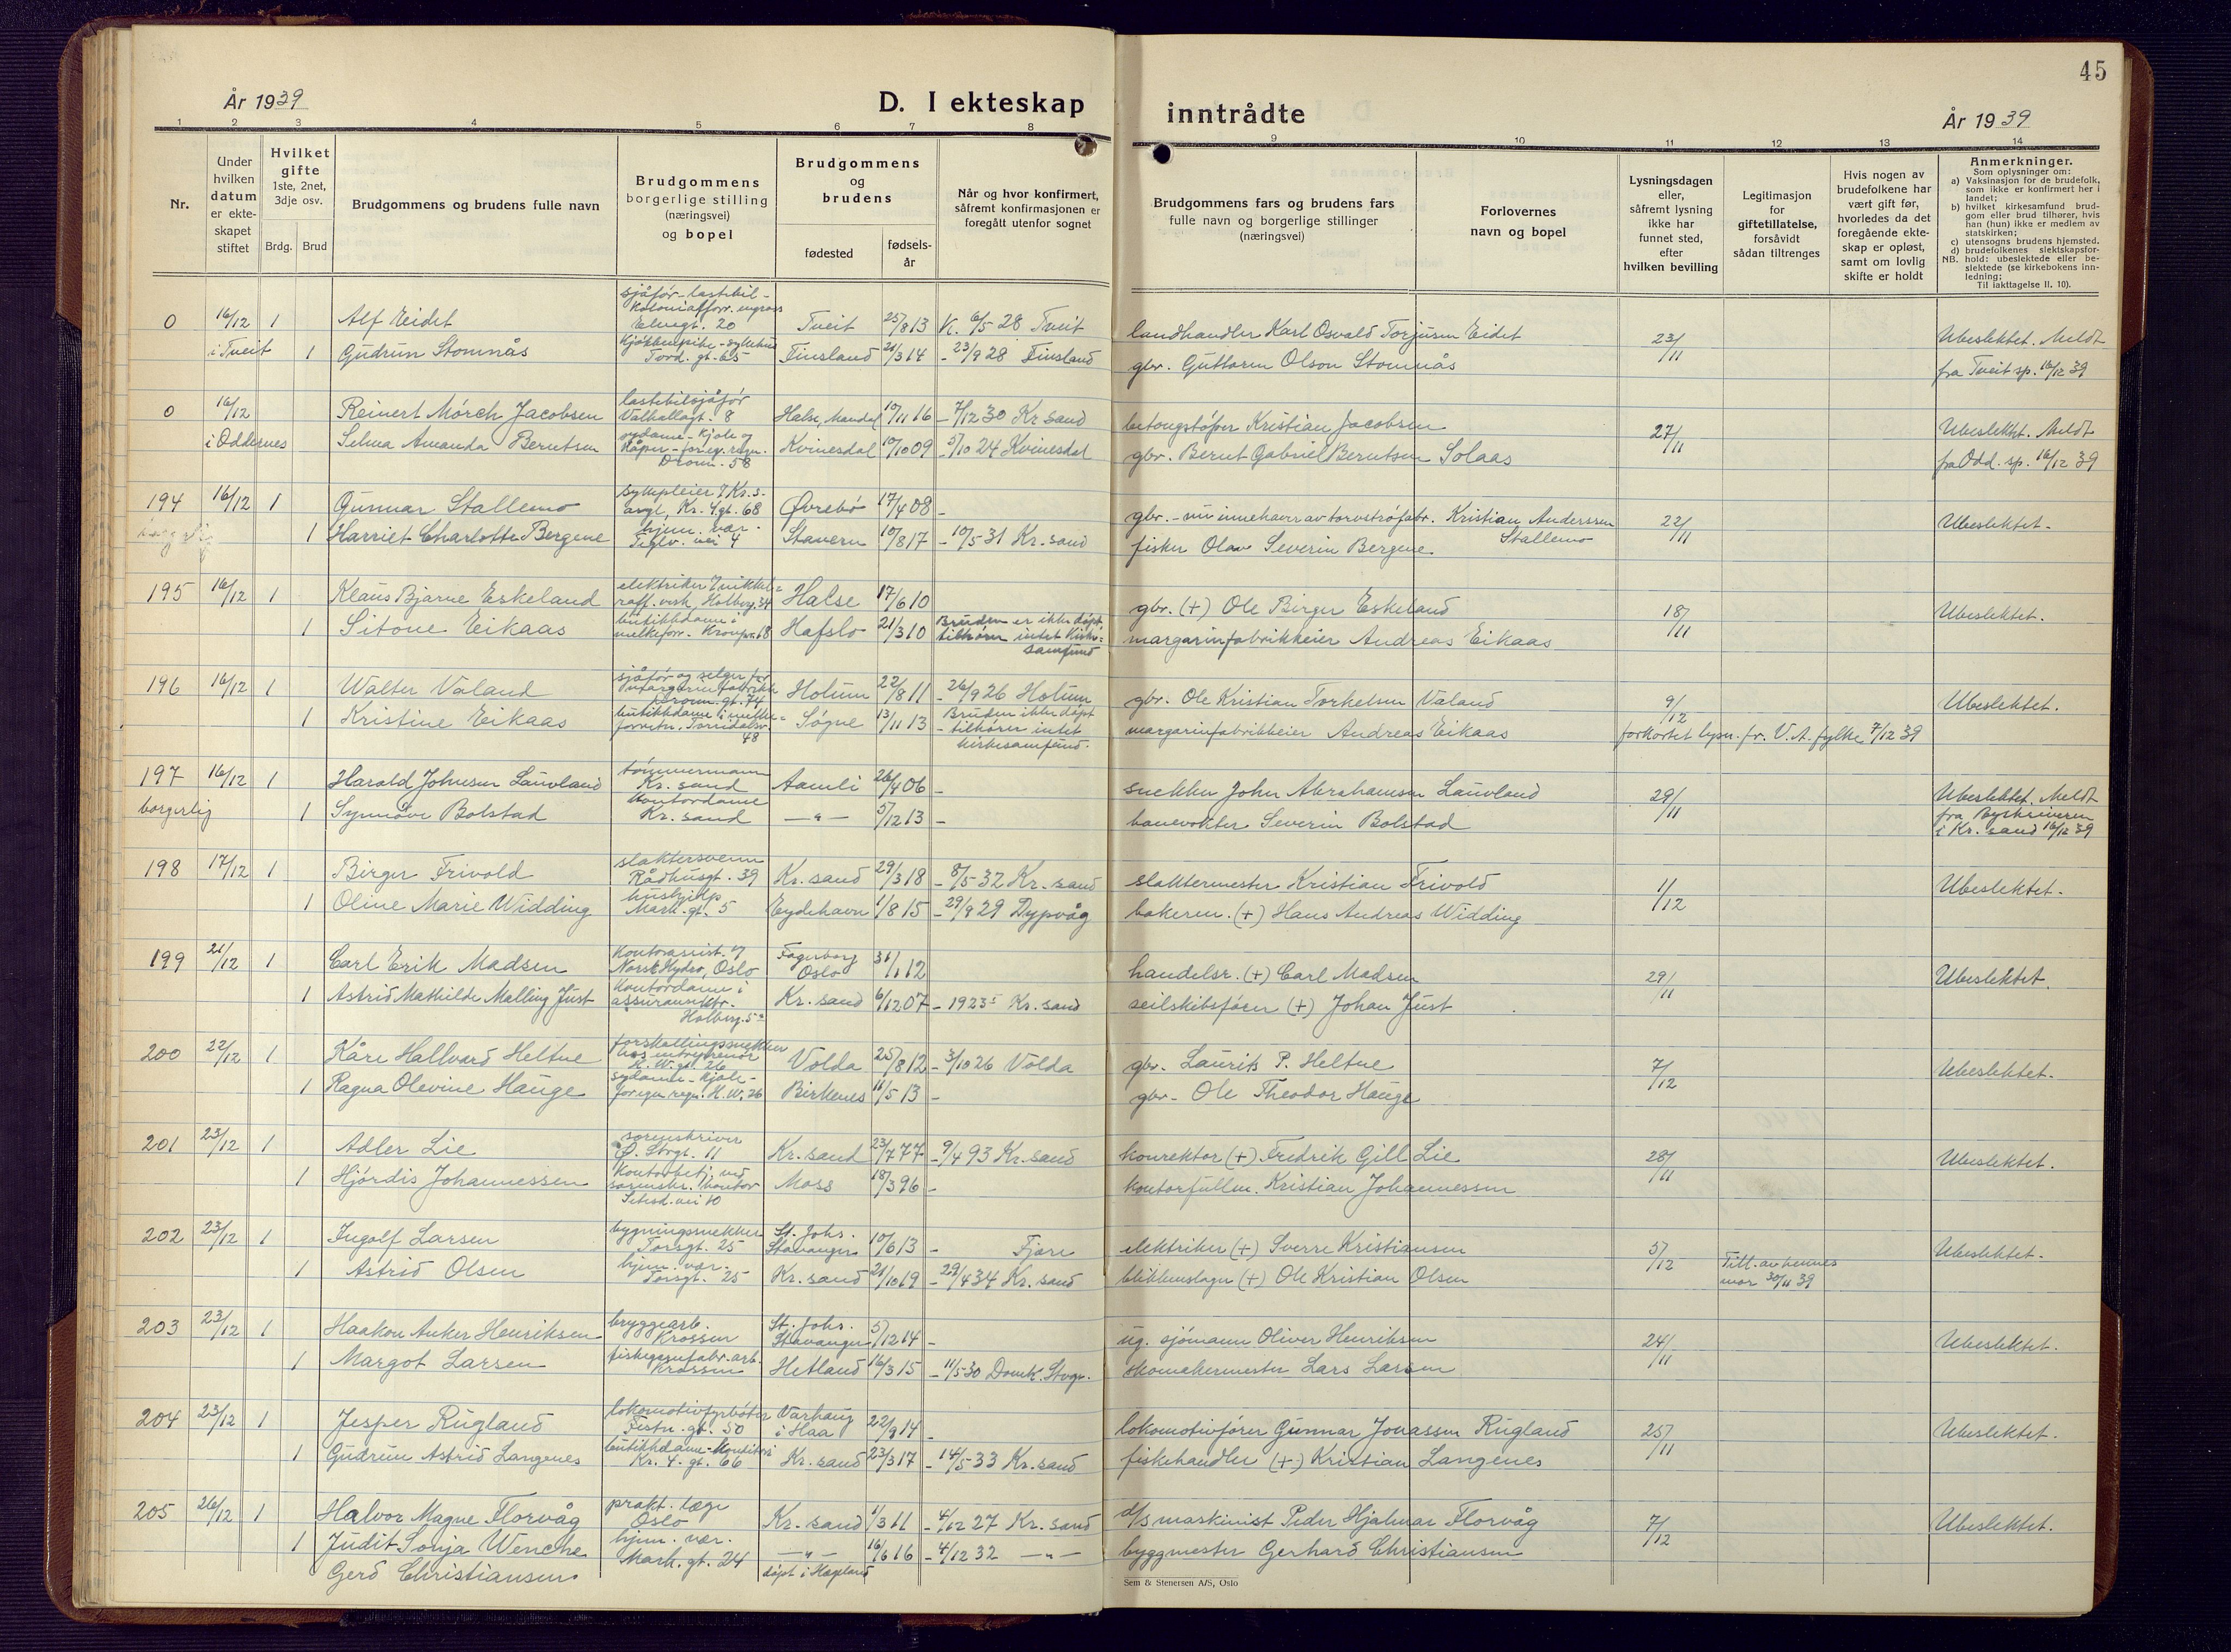 45
År 1939
D. I ekteskap
inntrådte
År 1939
1 2 3 4 5 6 7 8 9 10 11 12 13 14
Nr.
Under hvilken datum er ekte-skapet stiftet
Hvilket gifte 1ste, 2net, 3dje osv.
Brdg. Brud
Brudgommens og brudens fulle navn
Brudgommens borgerlige stilling (næringsvei) og bopel
Brudgommens og brudens
fødested
fødsels-år
Når og hvor konfirmert, såfremt konfirmasjonen er foregått utenfor sognet
Brudgommens fars og brudens fars fulle navn og borgerlige stillinger (næringsvei)
Forlovernes navn og bopel
Lysningsdagen eller, såfremt lysning ikke har funnet sted, efter hvilken bevilling
Legitimasjon for giftetillatelse, forsåvidt sådan tiltrenges
Hvis nogen av brudefolkene har vært gift før, hvorledes da det foregående ekte-skap er opløst, samt om lovlig skifte er holdt
Anmerkninger.
Som oplysninger om:
a) Vaksinasjon for de brudefolk, som ikke er konfirmert her i landet;
b) hvilket kirkesamfund brud-gom eller brud tilhører, hvis han (hun) ikke er medlem av statskirken;
c) utensogns brudens hjemsted.
d) brudefolkenes slektskapsfor-hold: ubeslektede eller be-slektede (se kirkebokens inn-ledning;
NB.
Til iakttagelse II, 10).
0 16/12 1 Alf Eidet sjåfør-lastebil- Elvegt. 20 Tveit 25/8 13 K. 6/5 28 Tveit landhandler Karl Osvald Torjusen Eidet 23/11 Ubeslektet. Meldt
i Tveit 1 Gudrun Stomnås Tord. gt. 65 Finsland 21/3 14 - 23/9 28 Finsland gbr. Guttorm Olson Stomnås fra Tveit sp. 16/12 39
0 16/12 Reinert Mørch Jacobsen lastebilsjåfør Valhallagt. 8 Halse, Mandal 19/11 16 - 7/12 30 Kr. sand betongstøper Kristian Jacobsen 27/11 Ubeslektet. Meldt
i Oddernes Selma Amanda Berntsen sydame - kjole og kåper - for eg. regn. Dronn. 58 Kvinesdal 10/10 09 - 5/10 24 Kvinesdal gbr. Bernt Gabriel Berntsen Solaas fra Odd. sp. 16/12 39
194 16/12 1 Gunnar Stallemo sykepleier Kr. 4. gt. 68 Øvrebø 17/4 08 - gbr. - nu innehaver av torvstrøfabr. Kristian Anderssen Stallemo 22/11 Ubeslektet.
borgerlig 1 Harriet Charlotte Bergene hjem. vær. Teglv. vei 4 Stavern 10/8 17 - 10/5 31 Kr. sand fisker Olav Severin Bergene
195 16/12 1 Klaus Bjarne Eskeland elektriker raff. verk, Holberg. 34 Halse 17/6 10 gbr. (+) Ole Birger Eskeland 18/11 Ubeslektet.
1 Sitone Eikaas butikkdame i melkeforr. Kronpr. 68 Hafslo 21/3 10 Bruden er ikke døpt, tilhører intet kirke-samfund margarinfabrikkeier Andreas Eikaas
196 16/12 1 Walter Valand sjåfør og selger for margarinfabrikk Dronn. gt. 74 Holum 22/8 11 - 26/9 26 Holum gbr. Ole Kristian Torkelsen Valand 9/12 Ubeslektet.
1 Kristine Eikaas butikkdame i melke-forretn., Torridalsv. 48 Søgne 13/11 13 Bruden ikke døpt - tilhører intet kirkesamfund. margarinfabrikkeier Andreas Eikaas forkortet lysn. fr. V. A. fylke 7/12 39
197 16/12 1 Harald Johnsen Lauvland tømmermann Kr. sand Aamli 26/4 06 - snekker John Abrahamsen Lauvland 29/11 Ubeslektet. Meldt
borgerlig 1 Synnøve Bolstad kontordame Kr. sand —"— 5/12 13 - banevokter Severin Bolstad fra Byskriveren i Kr. sand 16/12 39
198 17/12 1 Birger Frivold slaktersvenn Rådhusgt. 39 Kr. sand 29/3 18 - 8/5 32 Kr. sand slaktermester Kristian Frivold 1/12 Ubeslektet.
1 Oline Marie Widding hushjelp Mark. gt. 5 Eydehavn 1/8 15 - 29/9 29 Dypvåg bakerm. (+) Hans Andreas Widding
199 21/12 1 Carl Erik Madsen kontorassist. v/ Norsk Hydro, Oslo Fagerborg Oslo 31/1 12 handelsr. (+) Carl Madsen 29/11 Ubeslektet.
1 Astrid Mathilde Malling Just kontordame i assuransektr. Holberg. 5a Kr. sand 6/12 07 - 1923 Kr. sand seilskibsfører (+) Johan Just
200 22/12 1 Kåre Hallvard Heltne forskallingssnekker hos entreprenør H. W. gt. 26 Volda 25/8 12 - 3/10 26 Volda gbr. Laurits P. Heltne 7/12 Ubeslektet.
1 Ragna Olevine Hauge sydame - kjole - for egen regn. H. W. 26 Birkenes 11/5 13 - gbr - Ole Theodor Hauge
201 23/12 1 Adler Lie sorenskriver Ø. Strgt. 11 Kr. sand 23/7 77 - 9/4 93 Kr. sand konrektor (+) Fredrik Gill Lie 28/11 Ubeslektet.
1 Hjørdis Johannessen kontorbetj. ved sorenskr. kontor Setesd. vei 10 Moss 18/3 96 - kontorfullm. Kristian Johannessen
202 23/12 1 Ingolf Larsen bygningssnekker Torsgt. 25 St. Johs. Stavanger 10/6 13 - Fjære elektriker (+) Sverre Kristiansen 5/12 Ubeslektet.
1 Astrid Olsen hjem. vær. Torsgt. 25 Kr. sand 21/10 19 - 29/4 34 Kr. sand blikkenslager (+) Ole Kristian Olsen Till. av hennes mor 30/11 39
203 23/12 1 Haakon Anker Henriksen bryggearb. Krossen St. Johs. Stavanger 5/12 14 - ug. sjømann Oliver Henriksen 24/11 Ubeslektet.
1 Margot Larsen fiskegarnfabr. arb. Krossen Hetland 16/3 15 - 11/5 30 Domk. Stvgr. skomakermester Lars Larsen
204 23/12 1 Jesper Rugland lokomotivfyrbøter Festn. gt. 50 Varhaug i Haa 22/9 14 - lokomotivfører Gunnar Jonassen Rugland 25/11 Ubeslektet.
1 Gudrun Astrid Langenes butikkdame - konditori Kr. 4. gt. 66 Kr. sand 23/3 17 - 14/5 33 Kr. sand fiskehandler (+) Kristian Langenes
205 26/12 1 Halvor Magne Florvåg prakt. læge Oslo Kr. sand 1/3 11 - 4/12 27 Kr. sand d/s maskinist Peder Hjalmar Florvåg 7/12 Ubeslektet.
1 Judit Sonja Wenche Gerd Christiansen hjem. vær. Mark. gt. 24 —"— døpt i Hægeland 16/6 16 - 4/12 32 —"— byggmester Gerhard Christiansen
Sem & Stenersen A/S, Oslo